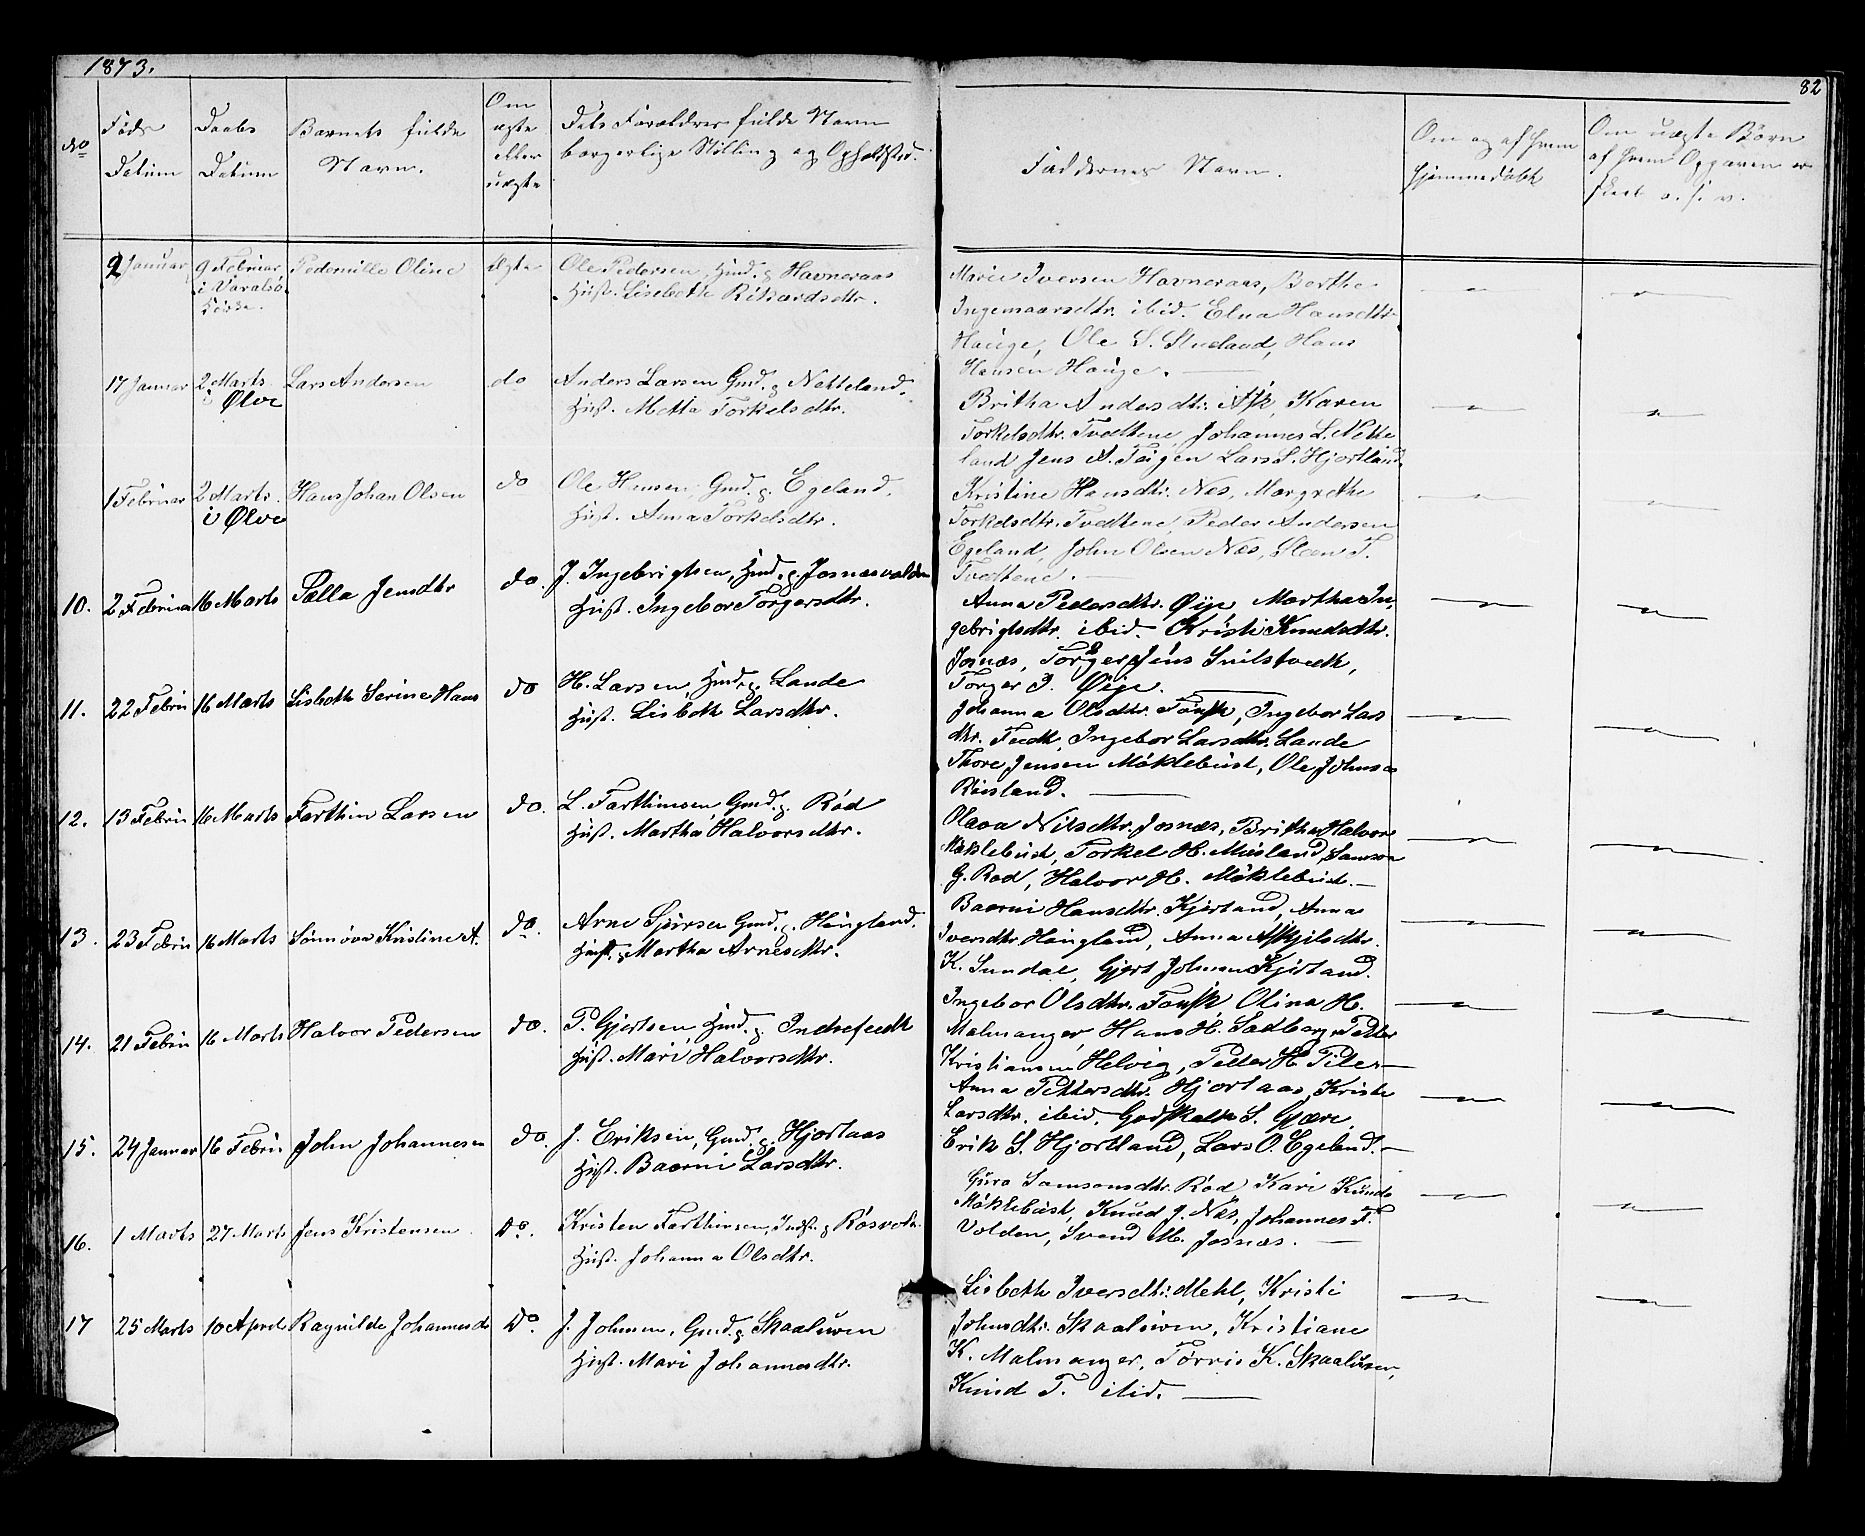 1873.
82
No
Føds
Datum
Daabs
Datum
Barnets fulde
Navn.
Om
ægte
eller
uægte
Dets Forældres fulde Navn
borgerlige Stilling og Opholdsted.
Faddernes Navn.
Om og af hvem
hjemmedøbt
Om uægte Børn
af hvem Opgaven er
skeet o. s. v.
2 Januar 9 Februar Pedernille Oline Ægte Ole Pedersen, Hmd. g Havneraas
i Varalsø
Kirke.
Hust. Lisebethe Rikardsdtr.
Marie Iversen Havneraas, Berthe
Ingemaarsdtr. ibid. Elna Hansdtr
Hauge, Ole S. Stueland, Hans
Hansen Hauge.
17 Januar 2 Marts Lars Andersen do Anders Larsen Gmd. g Netteland.
i Ølve
Hust. Metta Torkelsdtr.
Britha Andersdtr. Ask, Karen
Torkelsdtr. Tvedtene, Johannes L. Nette
land Jens A. Teigen Lars S. Hjortland
1 Februar 2 Marts Hans Johan Olsen do Ole Hansen, Gmd. g. Egeland.
i Ølve
Hust. Anna Torkelsdtr.
Kristine Hansdtr. Næs, Margrethe
Torkelsdtr. Tvedtene, Peder Andersen
Egeland, John Olsen Næs, Sten T.
Tvedtene.
10. 2 Februar 16 Marts Pælla Jensdtr do. J. Ingebrigtsen, Hmd. g. Josnæsvalden
Hust. Ingebor Torgersdtr.
Anna Pedersdtr. Øye, Martha In-
gebrigtsdtr. ibid. Kristi Knudsdtr.
Josnæs, Torger Jens Snilstveth,
Torger J. Øye.
11. 22 Febru 16 Marts Lisbeth Serine Hans do H. Larsen, Hmd. g. Lande
Hust. Lisbeth Larsdtr.
Johanna Olsdtr. Fousk, Ingebor Lars
dtr. Fedt, Ingebor Larsdtr. Lande
Thore Jensen Møklebust, Ole Johnsen
Røisland.
12. 13 Febru 16 Marts Farthin Larsen do. L. Farthinsen, Gmd. g. Rød
Hust. Martha Halvorsdtr.
Olava Nilsdtr. Josnæs, Britha Halvors
Møklebust, Torkel H. Miusland, Samson
G. Rød, Halvor H. Møklebust.
13. 23 Febru 16 Marts Sønnøva Kristine A. do. Arne Sjursen Gmd. g. Haugland.
Hust. Martha Arnesdtr.
Baarni Hansdtr. Kjerland, Anna
Iversdtr. Haugland, Anna Askjilsdtr.
K. Sundal, Gjert Johnsen Kjerland.
14. 21 Febru 16 Marts Halvor Pedersen do. P. Gjertsen, Hmd. g. Indrefedt
Hust. Mari Halvorsdtr.
Ingebor Olsdtr. Fousk, Olina H.
Malmanger, Hans H. Sadberg, Petter
Kristiansen Helvig, Peder H. Pile
15. 24 Januar 16 Febru John Johannesen do. J. Eriksen, Gmd. g. Hjortaas
Hust. Baarni Larsdtr.
Anna Pettersdtr. Hjortaas, Kristi
Larsdtr. ibid. Godskalk S. Gjære,
Erik S. Hjortland, Lars O. Egeland.
16. 1 Marts 27 Marts Jens Kristensen Do. Kristen Farthinsen, Indst. g Røsvoth.
Hust. Johanna Olsdtr.
Guro Samsonsdtr. Rød Kari Knuds
Møklebust, Knud J. Næs, Johannes F.
Volden, Svend M. Josnæs.
17 25 Marts 10 April Ragnilde Johannesd Do. J. Johnsen, Gmd. g Skaaluren
Hust. Mari Johannesdtr.
Lisbeth Iversdtr. Mehl, Kristi
Johnsdtr. Skaaluren, Kristiane
K. Malmanger, Tørris K. Skaaluren,
Knud T. ibid.